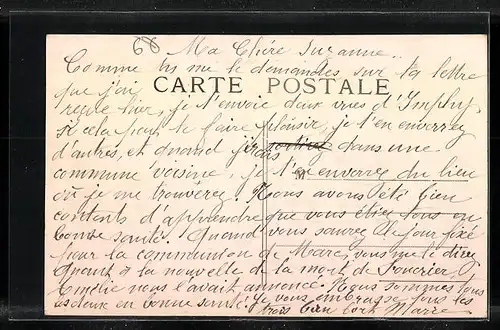 68
Ma Chère Suzanne..
Comme tu me le demandes sur ta lettre
que j'ai
CARTE POSTALE
reçue hier, je t'envoie deux vues d'Imphy,
si cela peut te faire plaisir, je t'en enverrez
d'autres, et quand j'irais dans une
commune voisine, je t'en enverrez du lieu
où je me trouverez. Nous avons été bien
contents d'apprendre que vous étiez tous en
bonne santé. Quand vous saurez le jour fixé
pour la communion de Marc, vous me le direz
Quant à la nouvelle de la mort de Fourrier,
Amélie nous l'avait annoncé. Nous sommes tous
les deux en bonne santé. Je vous embrasse tous les
trois bien fort Marie